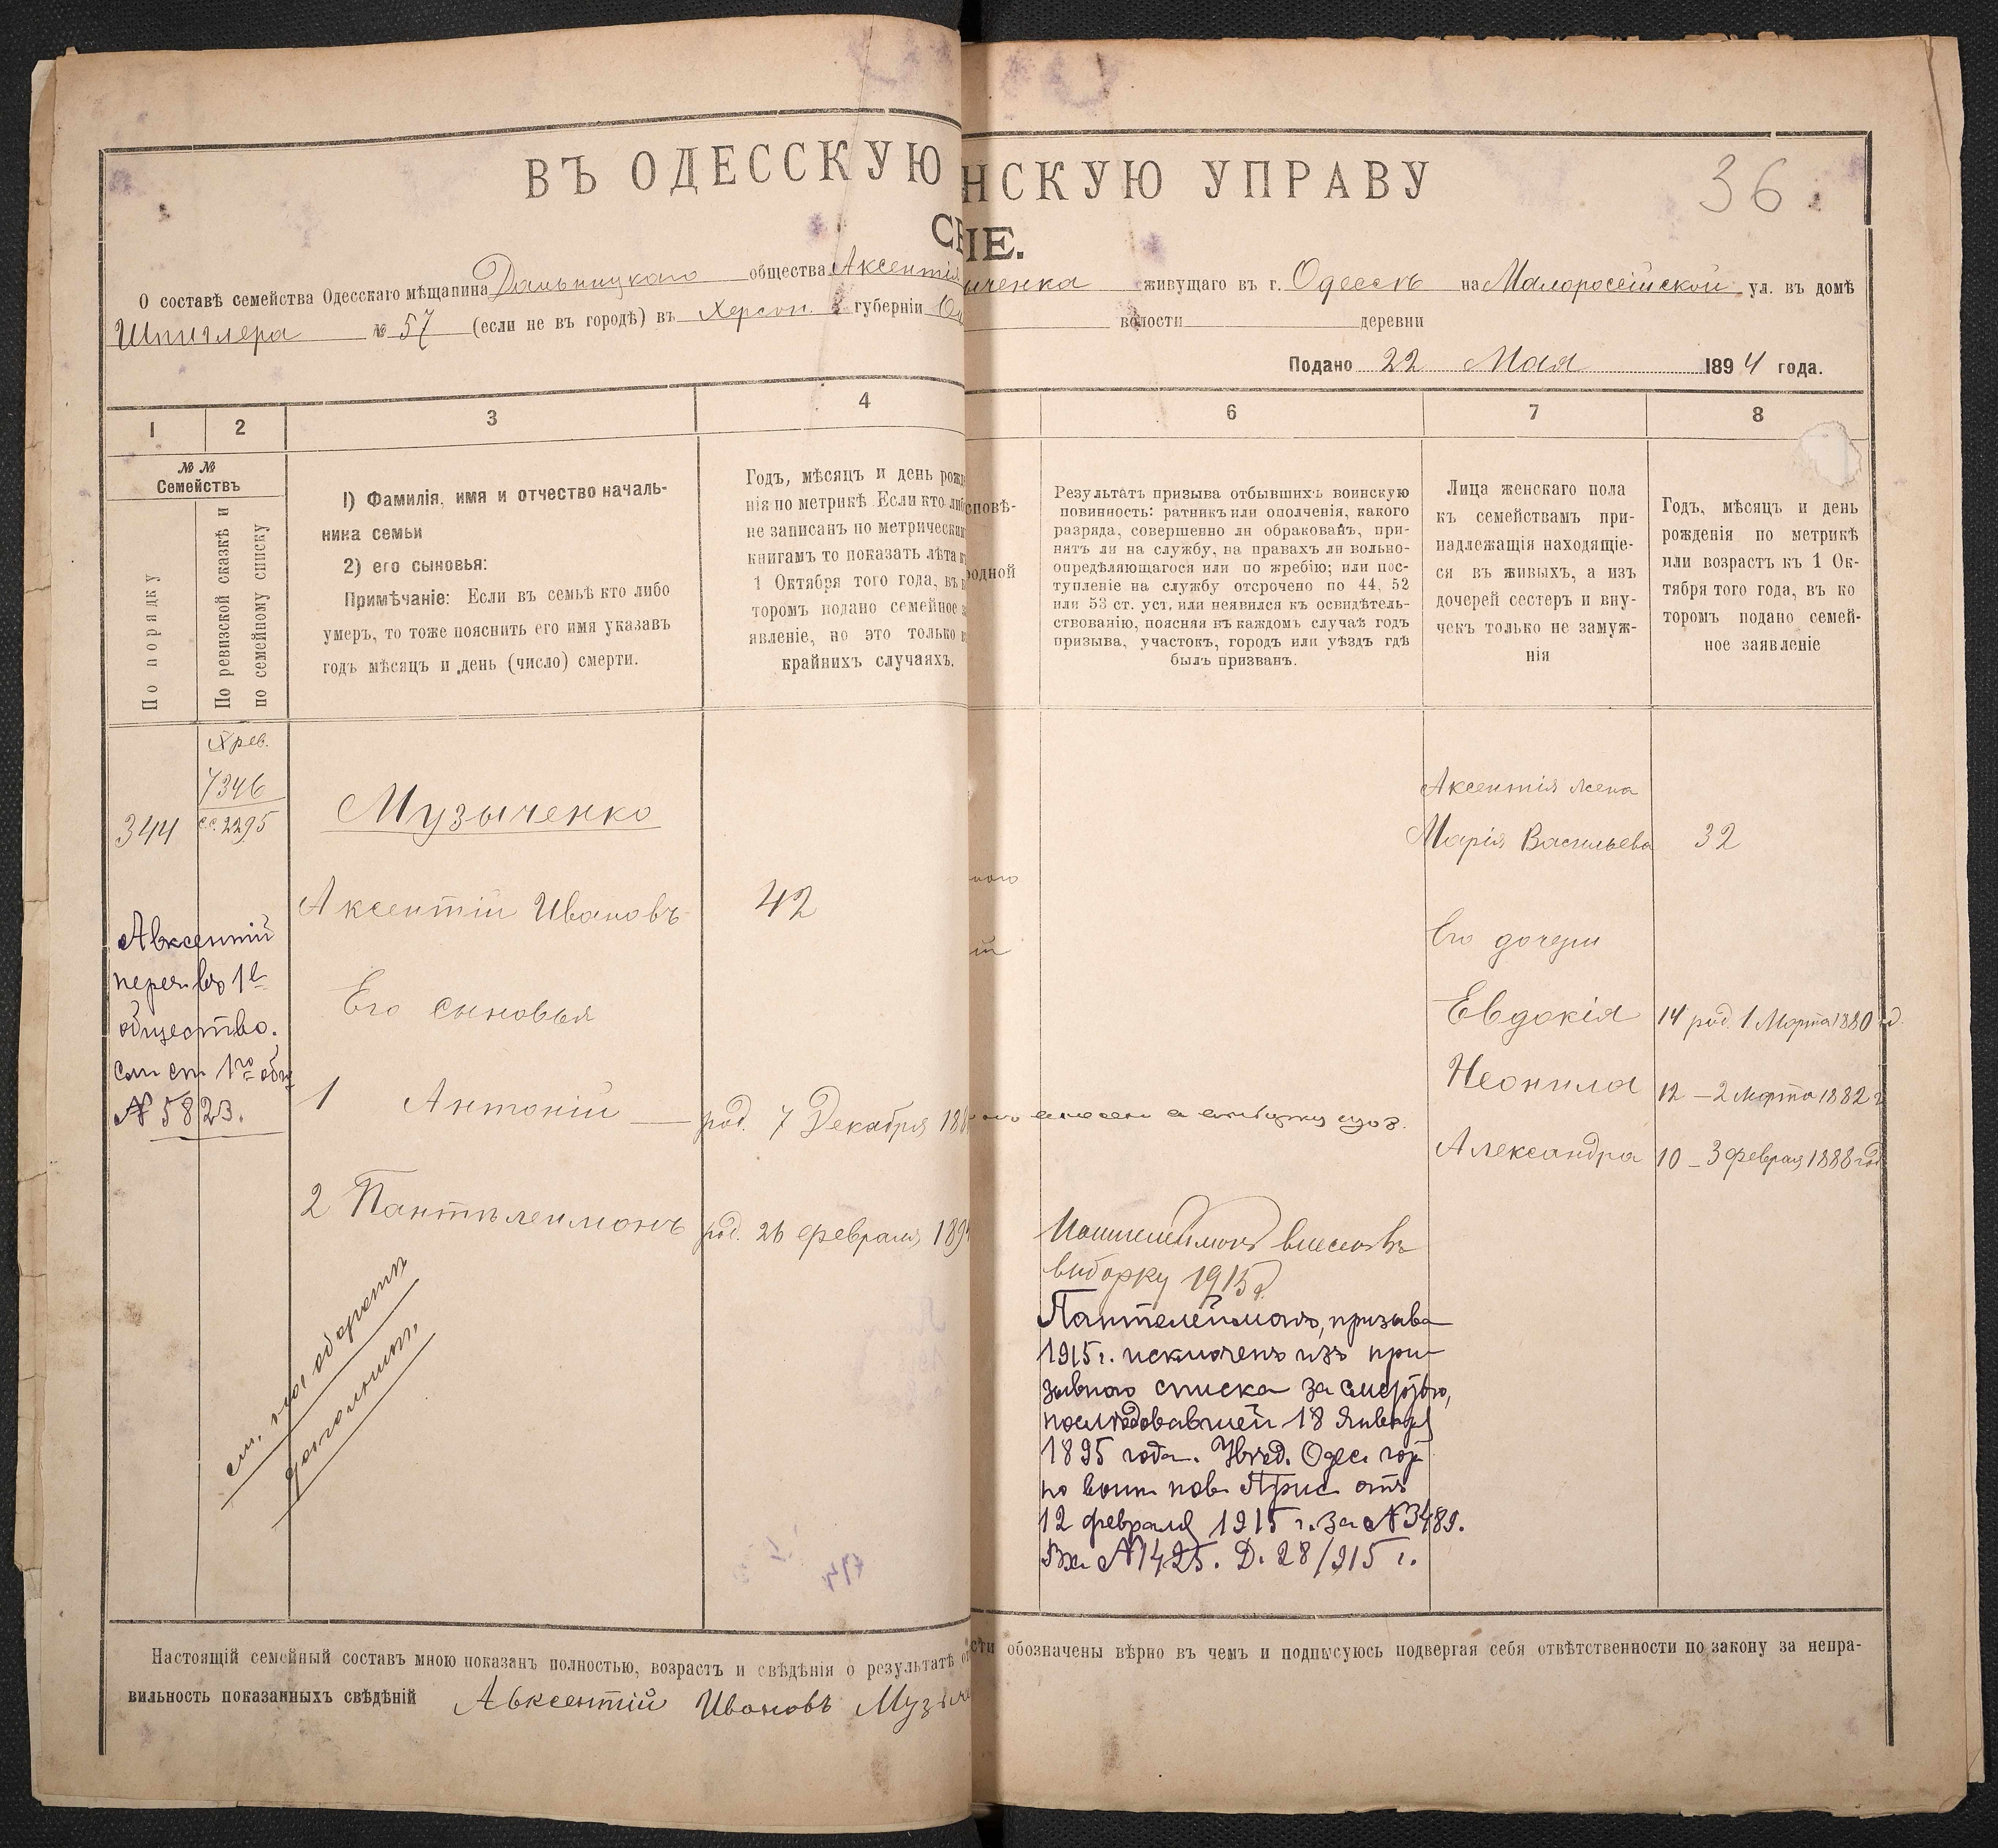 ВЪ ОДЕССКУЮ
НСКУЮ УПРАВУ
36
ІЕ.
О составѣ семейства Одесскаго мѣщанина Дальницкаго общества Аксентія
ыченка живущаго въ г. Одессѣ на Малоросейской ул. въ домѣ
Шпиглера № 57 (если не въ городѣ) въ Херсон. губерніи
волости деревни
Подано 22 Мая 1894 года.
1
2
3
4
6
7
8
№ №
Семействъ
По порядку
По ревизской сказкѣ и
по семейному списку
1) Фамилія, имя и отчество началь-
ника семьи
2) его сыновья:
Примѣчаніе: Если въ семьѣ кто либо
умеръ, то тоже пояснить его имя указавъ
годъ мѣсяцъ и день (число) смерти.
Годъ, мѣсяцъ и день рожд
нія по метрикѣ Если кто либ
не записанъ по метрически
книгамъ то показать лѣта к
1 Октября того года, въ к
торомъ подано семейное з
явленіе, но это только в
крайнихъ случаяхъ.
сповѣ-
родной
Результатъ призыва отбывшихъ воинскую
повинность: ратникъ или ополченія, какого
разряда, совершенно ли обракованъ, при-
нятъ ли на службу, на правахъ ли вольно-
опредѣляющагося или по жребію; или пос-
тупленіе на службу отсрочено по 44, 52
или 53 ст. уст. или неявился къ освидѣтель-
ствованію, поясняя въ каждомъ случаѣ годъ
призыва, участокъ, городъ или уѣздъ гдѣ
былъ призванъ.
Лица женскаго пола
къ семействамъ при-
надлежащія находящіе-
ся въ живыхъ, а изъ
дочерей сестеръ и вну-
чекъ только не замуж-
нія
Годъ, мѣсяцъ и день
рожденія по метрикѣ
или возрастъ къ 1 Ок-
тября того года, въ ко
торомъ подано семей-
ное заявленіе
X рев.
7346
344
сс. 2295
Музыченко
Аксентій Ивановъ
42
Авксентій
переч. въ 1е
общество.
см сп. 1го общ
№ 5823.
Его сыновья
1 Антоній род. 7 Декабря 18
2 Пантѣлеимонъ род. 26 февраля 189
см. на оборотѣ
дополнит.
ного
ій
Аксентія жена
Марія Васильева 32
Его дочери
Евдокія 14 род. 1 Марта 1880
Неонила 12 – 2 Марта 1882 г
Александра 10 – 3 Февраля 1888 год
Пантелеймонъ внесенъ въ
выборку 1915 г.
Пантелеймонъ, призыва
1915 г. исключенъ изъ при-
зывного списка за смертью,
последовавшей 18 Января
1895 года. Увѣд. Одес. гор.
по воин. пов. Прис. отъ
12 февраля 1915 г. за № 3489.
Вх. № 1425. Д. 28/915 г.
Настоящій семейный составъ мною показанъ полностью, возрастъ и свѣдѣнія о результатѣ от
сти обозначены вѣрно въ чемъ и подписуюсь подвергая себя отвѣтственности по закону за непра-
вильность показанныхъ свѣдѣній Авксентій Ивановъ Музыче